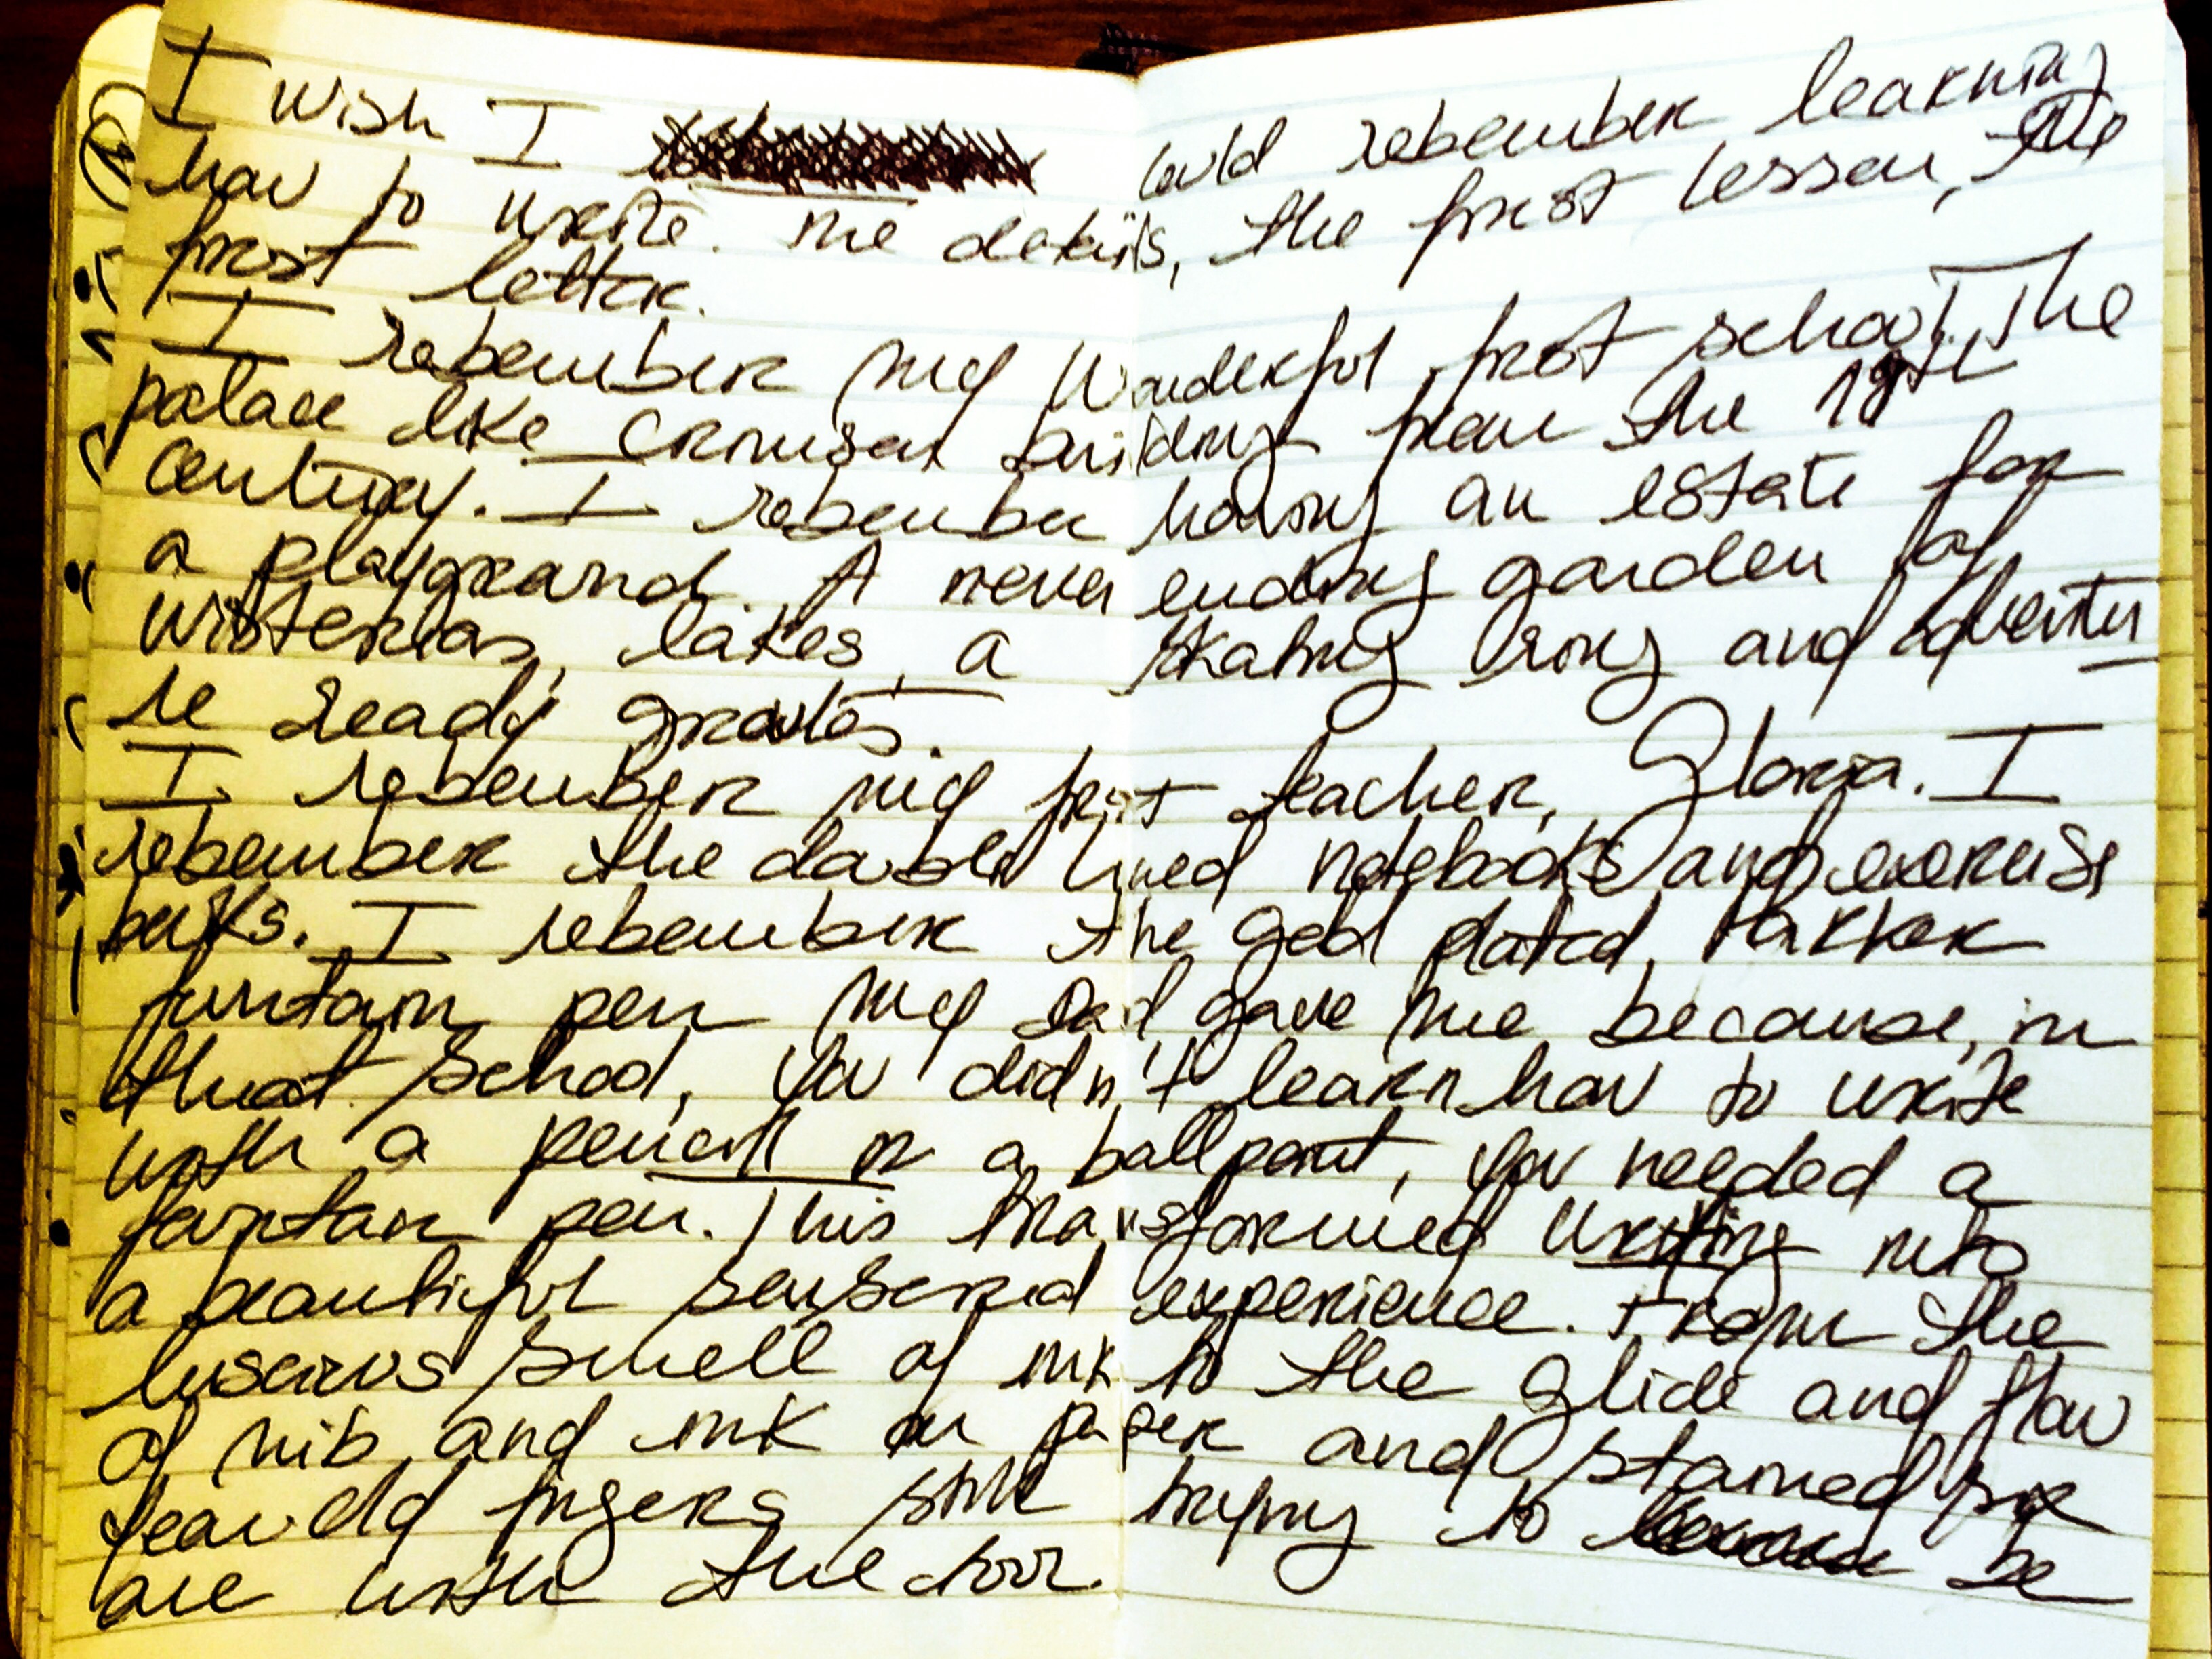 I wish I could rebember learning
how to write. The details, the first lesson, the
first letter.
I rebember my wonderful first school. The
palace like crimson building from the 19th
century. I rebember having an estate for
a playground. A never ending garden of
wisterias, lakes, a skating ring and adventu
re ready
I rebember my first teacher, Gloria. I
rebember the double lined notebooks and exercise
books. I rebember the gold plated, Parker
funtain pen my Dad gave me because, in
that school, you didn't learn how to write
with a pencil or a ballpoint, you needed a
fontain pen. This transformed writing into
a beautiful experience. From the
luscious smell of ink to the glide and flow
of nib and ink on paper and stained six
year old fingers still trying to be
one with the tool.